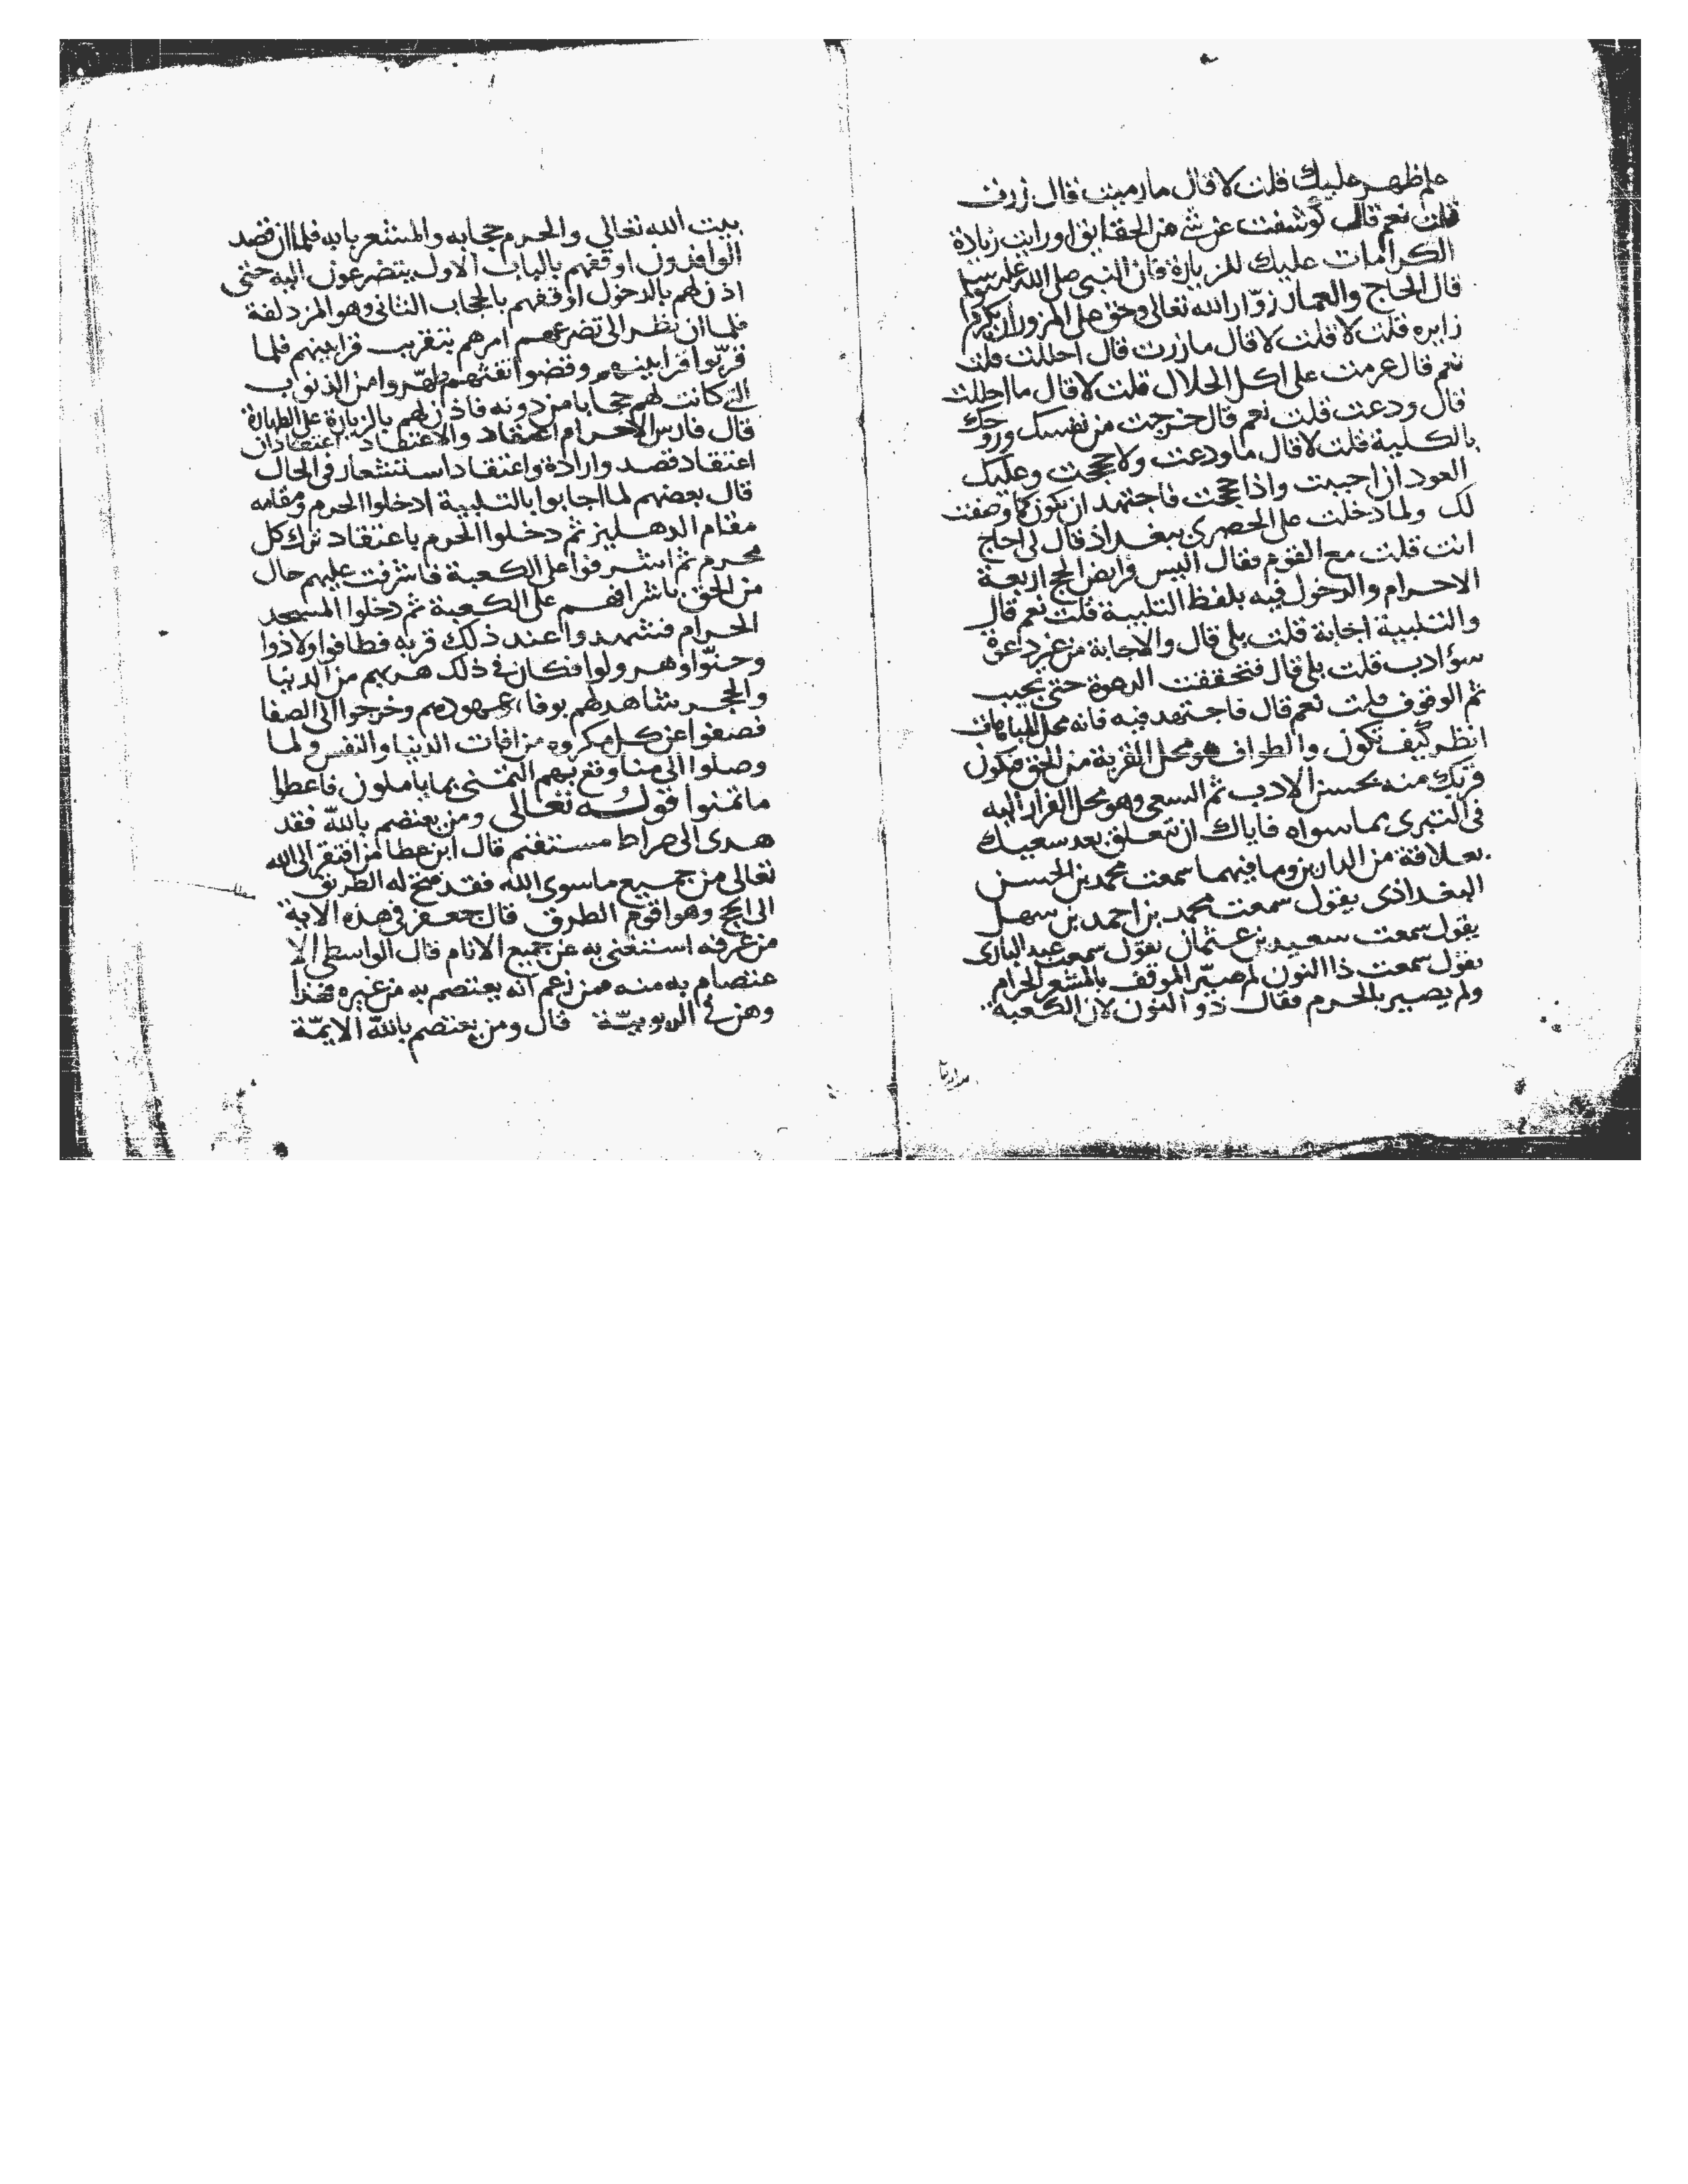 علم ظهر عليك قلت لا قال ما رميت قال زرت
قلت نعم قال كوشفت عن شي من الحقايق او رايت زيادة
الكرامات عليك للزيارة فان النبي صلى الله عليه وسلم
قال الحاج والعمار زوّار الله تعالى وحق على المزور ان يكرم
زايره قلت لا قلت لا قال ما زرت قال احللت قلت
نعم قال عزمت على اكل الحلال قلت لا قال ما احللت
قال ودعت قلت نعم قال خرجت من نفسك وروحك
بالكلية قلت لا قال ما ودعت ولا حججت وعليك
العود ان احببت واذا حججت فاجتهد ان تكون كما وصفت
لك ولما دخلت على الحصرى ببغداذ قال لى احاج
انت قلت مع القوم فقال اليس فرايض الحج اربعة
الاحرام والدخول فيه بلفظ التلبية قلت نعم قال
والتلبية اجابة قلت بلى قال والاجابة من غير دعوة
سؤ ادب قلت بلى قال فتحققت الدعوة حتى تجيب
ثم الوقوف قلت نعم قال فاجتهد فيه فانه محل المباهات
انظر كيف تكون والطواف هو محل القربة من الحق فتكون
قربك منه بحسن الادب ثم السعى وهو محل الفرار اليه
فى التبرى بما سواه فاياك ان تتعلق بعد سعيك
بعلاقة من الدارين وما فيهما سمعت محمد بن الحسن
البغداذى يقول سمعت محمد بن احمد بن سهل
يقول سمعت سعيد بن عثمان يقول سمعت عبد البارى
يقول سمعت ذا النون لم صيّر الموقف بالمشعر الحرام
ولم يصير بالحرم فقال ذو النون لان الكعبة
بيت الله تعالى والحرم حجابه والمشعر بابه فلما ان قصد
الوافدون اوقفهم بالباب الاول يتضرعون اليه حتى
اذن لهم بالدخول اوقفهم بالحجاب الثانى وهو المزدلفة
فلما ان نظر الى تضرعهم امرهم بتقريب قرابينهم فلما
قرّبوا قرابينهم وقضوا تفثهم وطهّروا من الذنوب
التي كانت لهم حجابا من دونه فاذن لهم بالزيارة على الطهارة
قال فارس الاحرام اعتقاد والاعتقاد اعتقادان
اعتقاد قصد وارادة واعتقاد استشعار فى الحال
قال بعضهم لما اجابوا بالتلبية ادخلوا الحرم ومقامه
مقام الدهليز ثم دخلوا الحرم باعتقاد ترك كل
محرم ثم اشرفوا على الكعبة فاشرفت عليهم حال
من الحق باشرافهم على الكعبة ثم دخلوا المسجد
الحرام فشهدوا عند ذلك قربه فطافوا ولاذوا
وحنّوا وهرولوا فكان فى ذلك هربهم من الدنيا
والحجر شاهد لهم بوفاء عهودهم وخرجوا الى الصفا
فصفوا عن كل مكروه من افات الدنيا والنفس ولما
وصلوا الى منا وقع بهم التمنى بما ياملون فاعطوا
ما تمنوا قوله تعالى ومن يعتصم بالله فقد
هدى الى صراط مستقيم قال ابن عطا من افتقر الى الله
تعالى من جميع ما سوى الله فقد فتح له الطريق
الى الحج وهو اقوم الطرق قال جعفر فى هذه الاية
من عرفه استغنى به عن جميع الانام قال الواسطى الا
عتصام به منه فمن زعم انه يعتصم به من غيره فهذا
وهن فى الربوبيّة قال ومن يعتصم بالله الايمّة